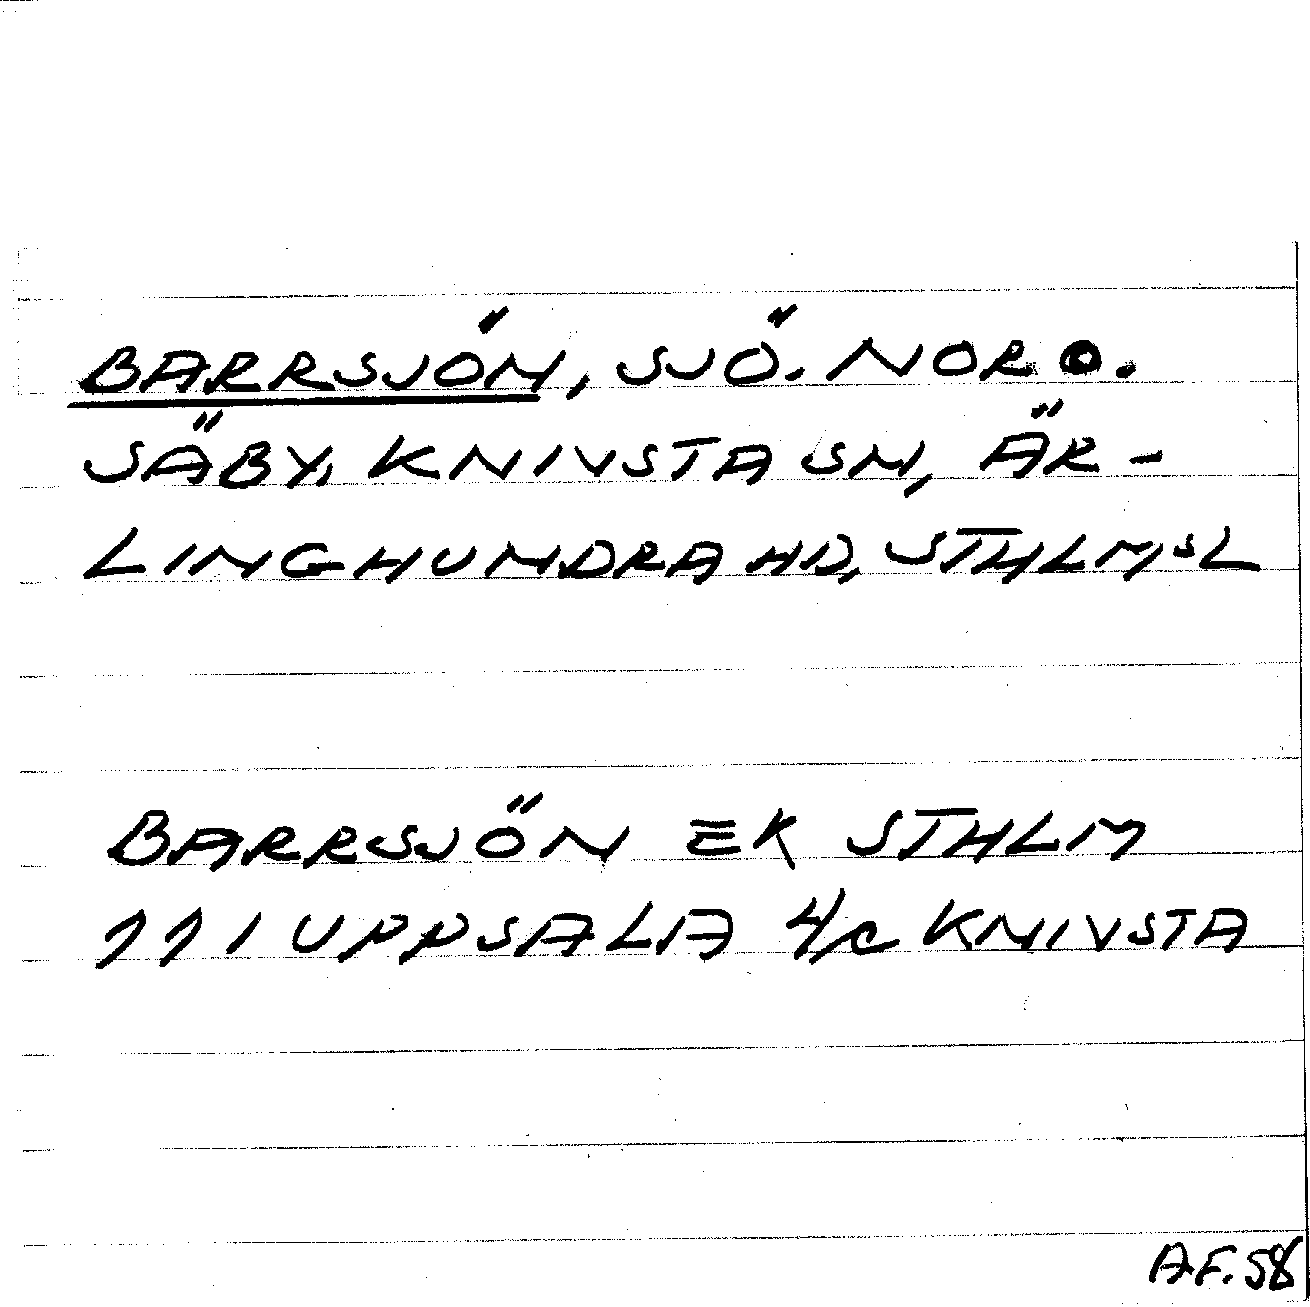 BARRSJÖN, SJÖ. NOR O.
SÄBY, KNIVSTA SN, ÄR-
LINGHUNDRA HD, STHLMSL
BARRSJÖN EK STHLM
111 UPPSALA 4/c KNIVSTA
AF. 58